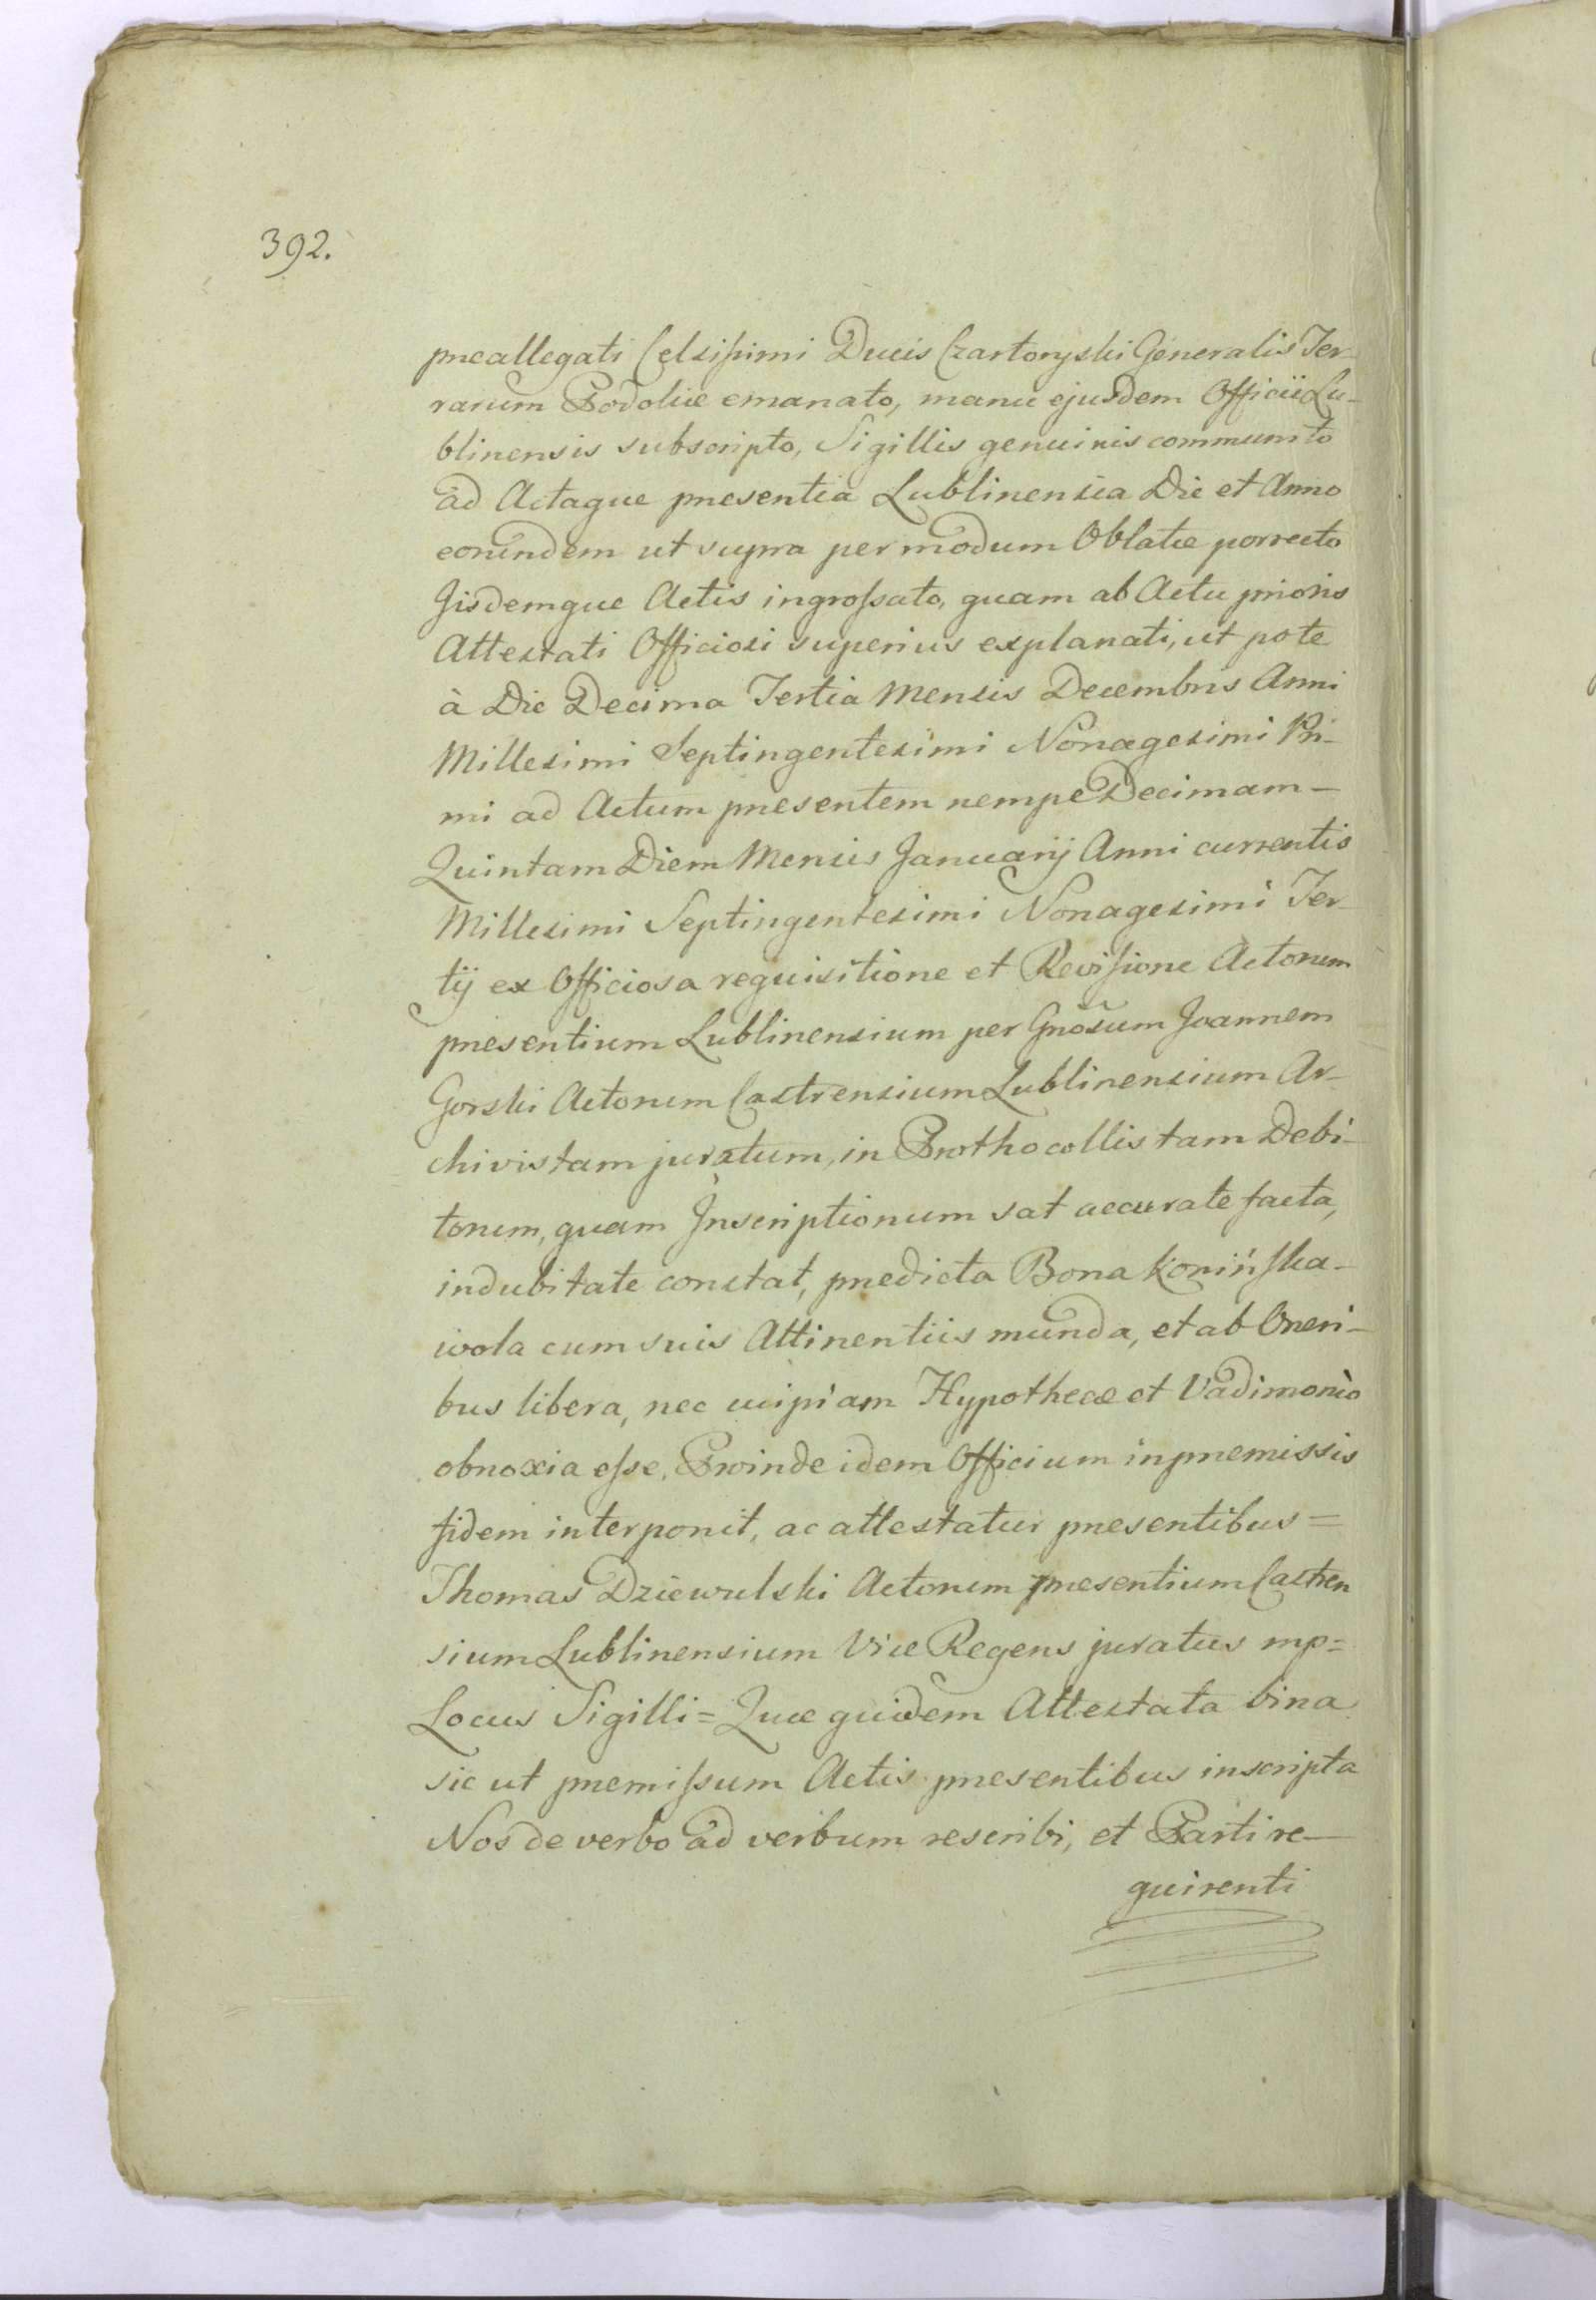 392.
præallegati Celsissimi Ducis Czartoryski Generalis Ter-
rarum Podoliæ emanato, manu ejusdem Officii Lu-
blinensis subscripto, Sigillis genuinis communito
ad Actaque presentia Lublinensia Die et Anno
eorundem ut supra per modum Oblatæ porrecto
Jisdemque Actis ingrossato, quam ab Actu prioris
Attestati Officiosi superius explanati, ut pote
à Die Decima Tertia Mensis Decembris Anni
Millesimi Septingentesimi Nonagesimi Pri-
mi ad Actum presentem nempe Decimam-
Quintam Diem Mensis Januarij Anni currentis
Millesimi Septingentesimi Nonagesimi Ter-
tij ex Officiosa requisitione et Revisione Actorum
presentium Lublinensium per Gnosum Joannem
Gorski Actorum Castrensium Lublinensium Ar-
chivistam juratum, in Prothocollis tam Debi-
torum, quam Inscriptionum sat accurate facta,
indubitate constat, predicta Bona Konińska-
wola cum suis Attinentiis munda, et ab Oneri-
bus libera, nec cuipiam Hypothecæ et Vadimonio
obnoxia esse, Proinde idem Officium in premissis
fidem interponit, ac attestatur presentibus =
Thomas Dziewulski Actorum presentium Castren
sium Lublinensium Vice Regens juratus mp=
Locus Sigilli = Quæ quidem Attestata bina
sic ut premissum Actis presentibus inscripta
Nos de verbo ad verbum rescribi, et Parti re-
quirenti